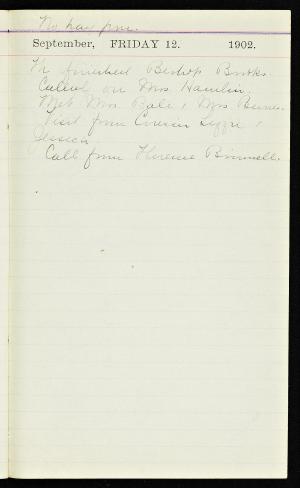 September, FRIDAY 12. 1902.
finished Bishop Brooks.
Called on Mrs. Hamlin.
Met Mrs. Bale, Mrs
Visit from Cousin Lizzie,
Jessica.
Call from Florence